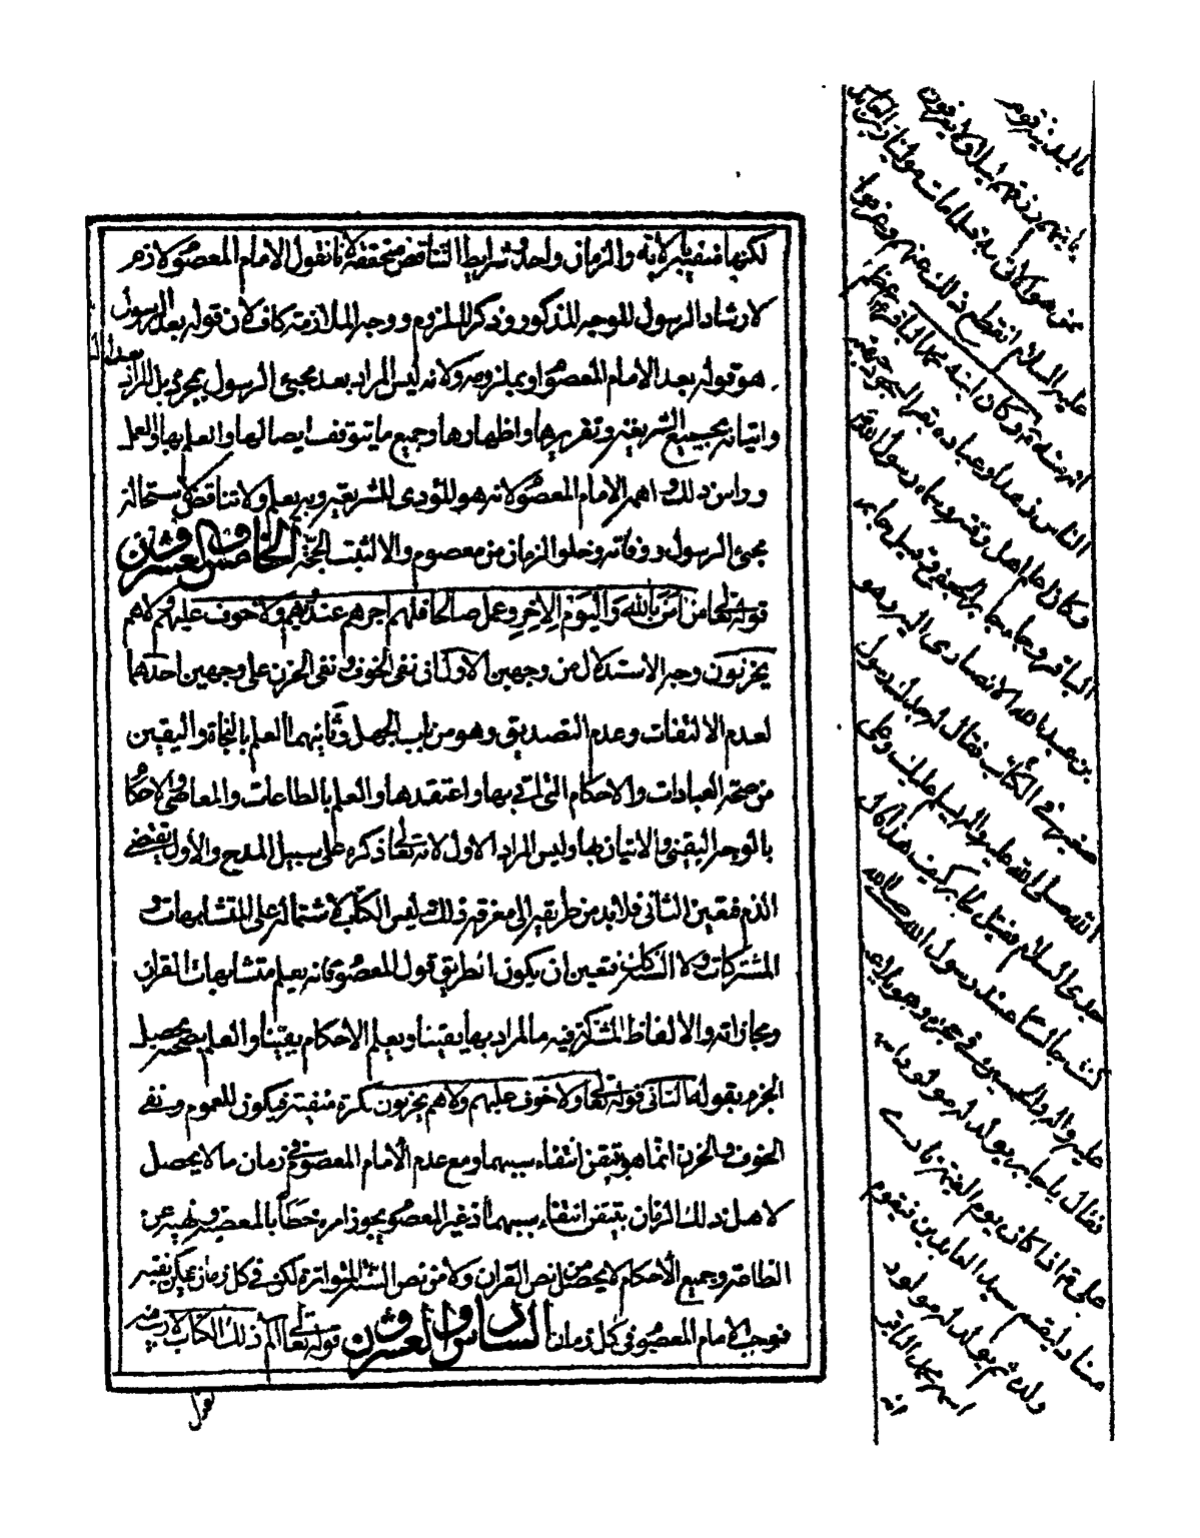 لكنها منفية لانه والزمان واحد وشرايط التناقض متحققة لانا نقول الامام المعصوم لازم
لارشاد الرسول للوجه المذكور وذكر الملزوم ووجه الملازمة كاف لان قوله بعد الرسول
هو قوله بعد الامام المعصوم او بملزومه ولانه ليس المراد بعد مجيئ الرسول بمجرده بل المراد
واتيانه بجميع الشريعة وتقريرها واظهارها وجميع ما يتوقف ايصالها والعلم بها والعمل
وراس ذلك واهمه الامام المعصوم لانه هو المؤدى للشريعة وبه يعلم ولا تناقض لاستحالة
مجيئ الرسول ووفاته وخلو الزمان من معصوم والا لثبت الحجة الخامس والعشرون
قوله تعالى من امن بالله واليوم الاخر وعمل صالحا فلهم اجرهم عند ربهم ولا خوف عليهم ولا هم
يحزنون وجه الاستدلال من وجهين الاول ان نفى الخوف ونفى الحزن على وجهين احدهما
لعدم الالتفات وعدم التصديق وهو من باب الجهل وثانيهما العلم بالنجاة واليقين
من صحة العبادات والاحكام التى اتى بها واعتقدها والعلم بالطاعات والمعاصى والاحكام
بالوجه اليقينى والاتيان بها وليس المراد الاول لانه تعالى ذكره على سبيل المدح والأول يقتضى
الذم فتعين الثانى فلابد من طريق الى معرفة ذلك وليس الكتاب لاشتماله على المتشابهات و
المشتركات ولا السنة كذلك فتعين ان يكون الطريق قول المعصوم فانه يعلم متشابهات القران
ومجازاته والالفاظ المشتركة فيه ما المراد بها يقينا ويعلم الاحكام يقينا والعلم بعصمته يحصل
الجزم بقوله الثانى قوله تعالى ولا خوف عليهم ولا هم يحزنون نكرة منفية فيكون للعموم ونفى
الخوف والحزن انما هو بتيقن انتفاء سببهما ومع عدم الامام المعصوم فى زمان ما لا يحصل
لاهل ذلك الزمان تيقن انتفاء سببهما اذ غير المعصوم يجوز امره خطأ بالمعصية ونهيه عن
الطاعة وجميع الأحكام لا يحصل من نص القران ولا من نص السنة المتواترة لكن فى كل زمان يمكن نفيه
فوجب الامام المعصوم فى كل زمان السادس والعشرون قوله تعالى الم ذلك الكتاب لا ريب فيه
نقول
بالمدينة قوم
يأتيهم رزقهم ليلا ولا يعرفون
ممن هو فلما مات مولانا زين العابدين
عليه السلام انقطع ذلك عنهم وعرفوا
انه منه وكان ابنه محمد الباقر اعظم
الناس زهدا وعبادة بقر السجود جبهته
وكان اعلم اهل وقته وسماه رسول الله
الباقر وجاء جابر
بن عبد الله الانصارى اليه وهو
صغير فى الكتاب فقال له جدك رسول
الله صلى الله عليه واله يسلم عليك وعلى
جدى السلام فقيل لجابر كيف هذا قال
كنت جالسا عند رسول الله صلى الله
عليه واله والحسين فى حجره وهو يلاعبه
فقال يا جابر يولد له مولود اسمه
على اذا كان يوم القيمة نادى
مناد ليقم سيد العابدين فيقوم
ولده ثم يولد له مولود
اسمه محمد الباقر
انه